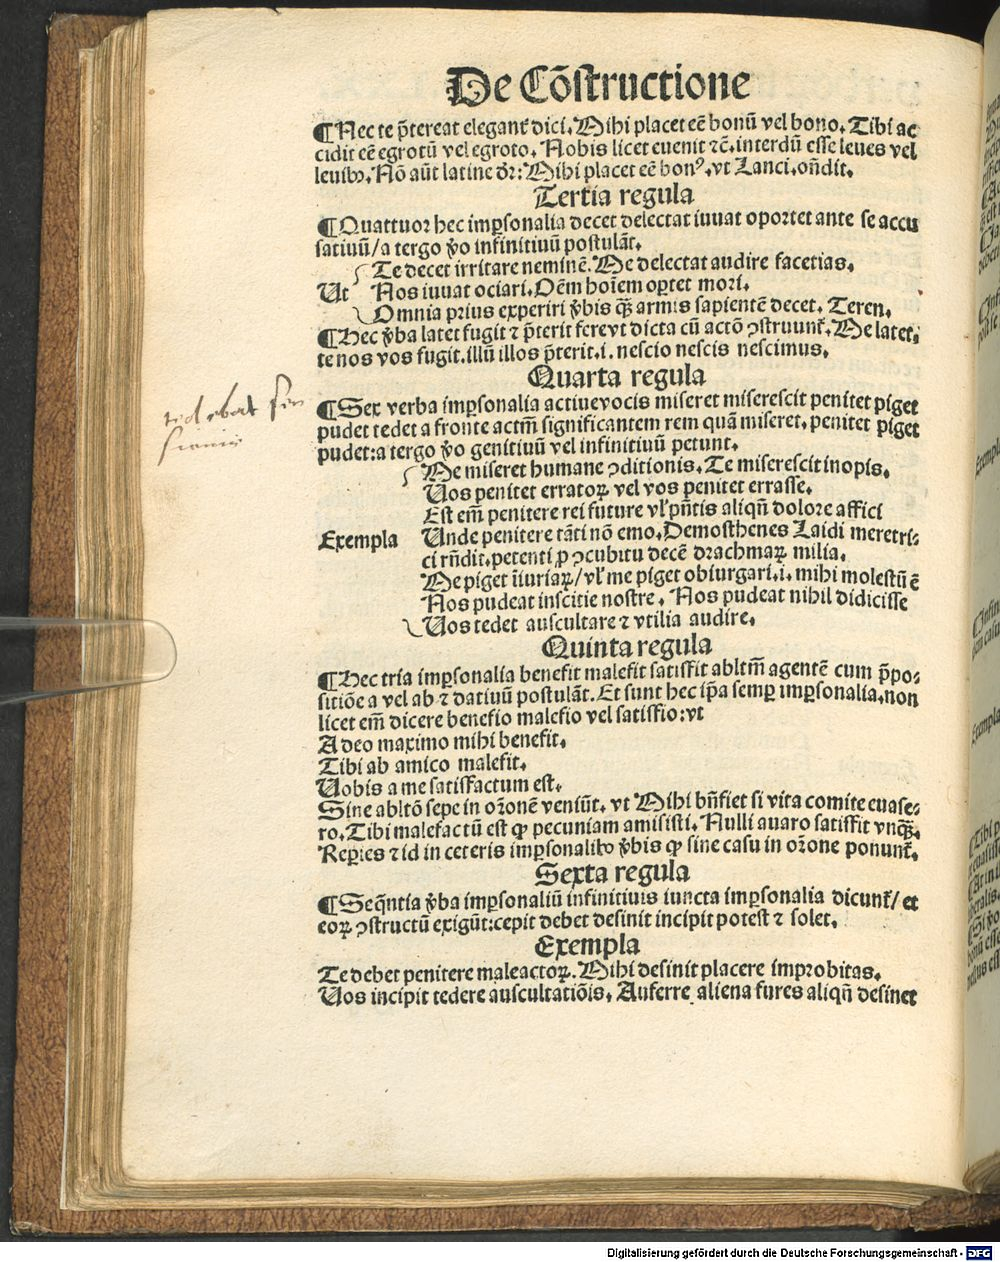 De Cõstructione
¶Nec te p̃tereat elegant᷑ dici. Mihi placet eẽ bonũ vel bono. Tibi ac
cidit eẽ egrotũ vel egroto. Nobis licet euenit ⁊c̃. interdũ esse leues vel
leuibꝰ. Nõ aũt latine dr̃: Mihi placet eẽ bonꝰ. vt Lanci. oñdit.
Tertia regula
¶Quattuor hec imp̱sonalia decet delectat iuuat oportet ante se accu
satiuũ/a tergo ṽo infinitiuũ postulãt.
Te decet irritare neminẽ. Me delectat audire facetias.
Ut Nos iuuat ociari. Oẽm hoĩem op̱tet mori.
Omnia prius experiri ṽbis q̃ꝫ armis sapientẽ decet. Teren.
¶Hec ṽba latet fugit ⁊ p̃terit fere vt dicta cũ actõ ꝯstruunt᷑. Me latet.
te nos vos fugit. illũ illos p̃terit. i. nescio nescis nescimus.
Quarta regula
¶Sex verba imp̱sonalia actiue vocis miseret miserescit penitet piget
pudet tedet a fronte actm̃ significantem rem quã miseret. penitet piget
pudet: a tergo ṽo genitiuũ vel infinitiuũ petunt.
tedebat
Me miseret humane ꝯditionis. Te miserescit inopis.
Uos penitet erratoꝝ vel vos penitet errasse.
Est em̃ penitere rei future vl᷑ pñtis aliqñ dolore affici
Exempla Unde penitere tãti nõ emo. Demosthenes Laidi meretri⸗
ci rñdit. petenti ꝓ ꝯcubitu decẽ drachmaꝝ milia.
Me piget ĩiuriaꝝ/vl᷑ me piget obiurgari. i. mihi molestũ ẽ
Nos pudeat inscitie nostre. Nos pudeat nihil didicisse
Uos tedet auscultare ⁊ vtilia audire.
Quinta regula
¶Hec tria imp̱sonalia benefit malefit satisfit abltm̃ agentẽ cum p̃po⸗
sitiõe a vel ab ⁊ datiuũ postulãt. Et sunt hec ip̃a semp̱ imp̱sonalia. non
licet em̃ dicere benefio malefio vel satisfio: vt
A deo maximo mihi benefit.
Tibi ab amico malefit.
Uobis a me satisfactum est.
Sine abltõ sepe in oꝛ̃one veniũt. vt Mihi bñfiet si vita comite euase⸗
ro. Tibi malefactũ est ꝙ pecuniam amisisti. Nulli auaro satisfit vnq̃ꝫ.
Rep̱ies ⁊ id in ceteris imp̱sonalibꝰ ṽbis ꝙ sine casu in oꝛ̃one ponunt᷑.
Sexta regula
¶Seq̃ntia ṽba imp̱sonaliũ infinitiuis iuncta imp̱sonalia dicunt᷑/ et
eoꝝ ꝯstructũ exigũt: cepit debet desinit incipit potest ⁊ solet.
Exempla
Te debet penitere male actoꝝ. Mihi desinit placere improbitas.
Uos incipit tedere auscultatiõis. Auferre aliena fures aliqñ desinet
Digitalisierung gefördert durch die Deutsche Forschungsgemeinschaft - DFG